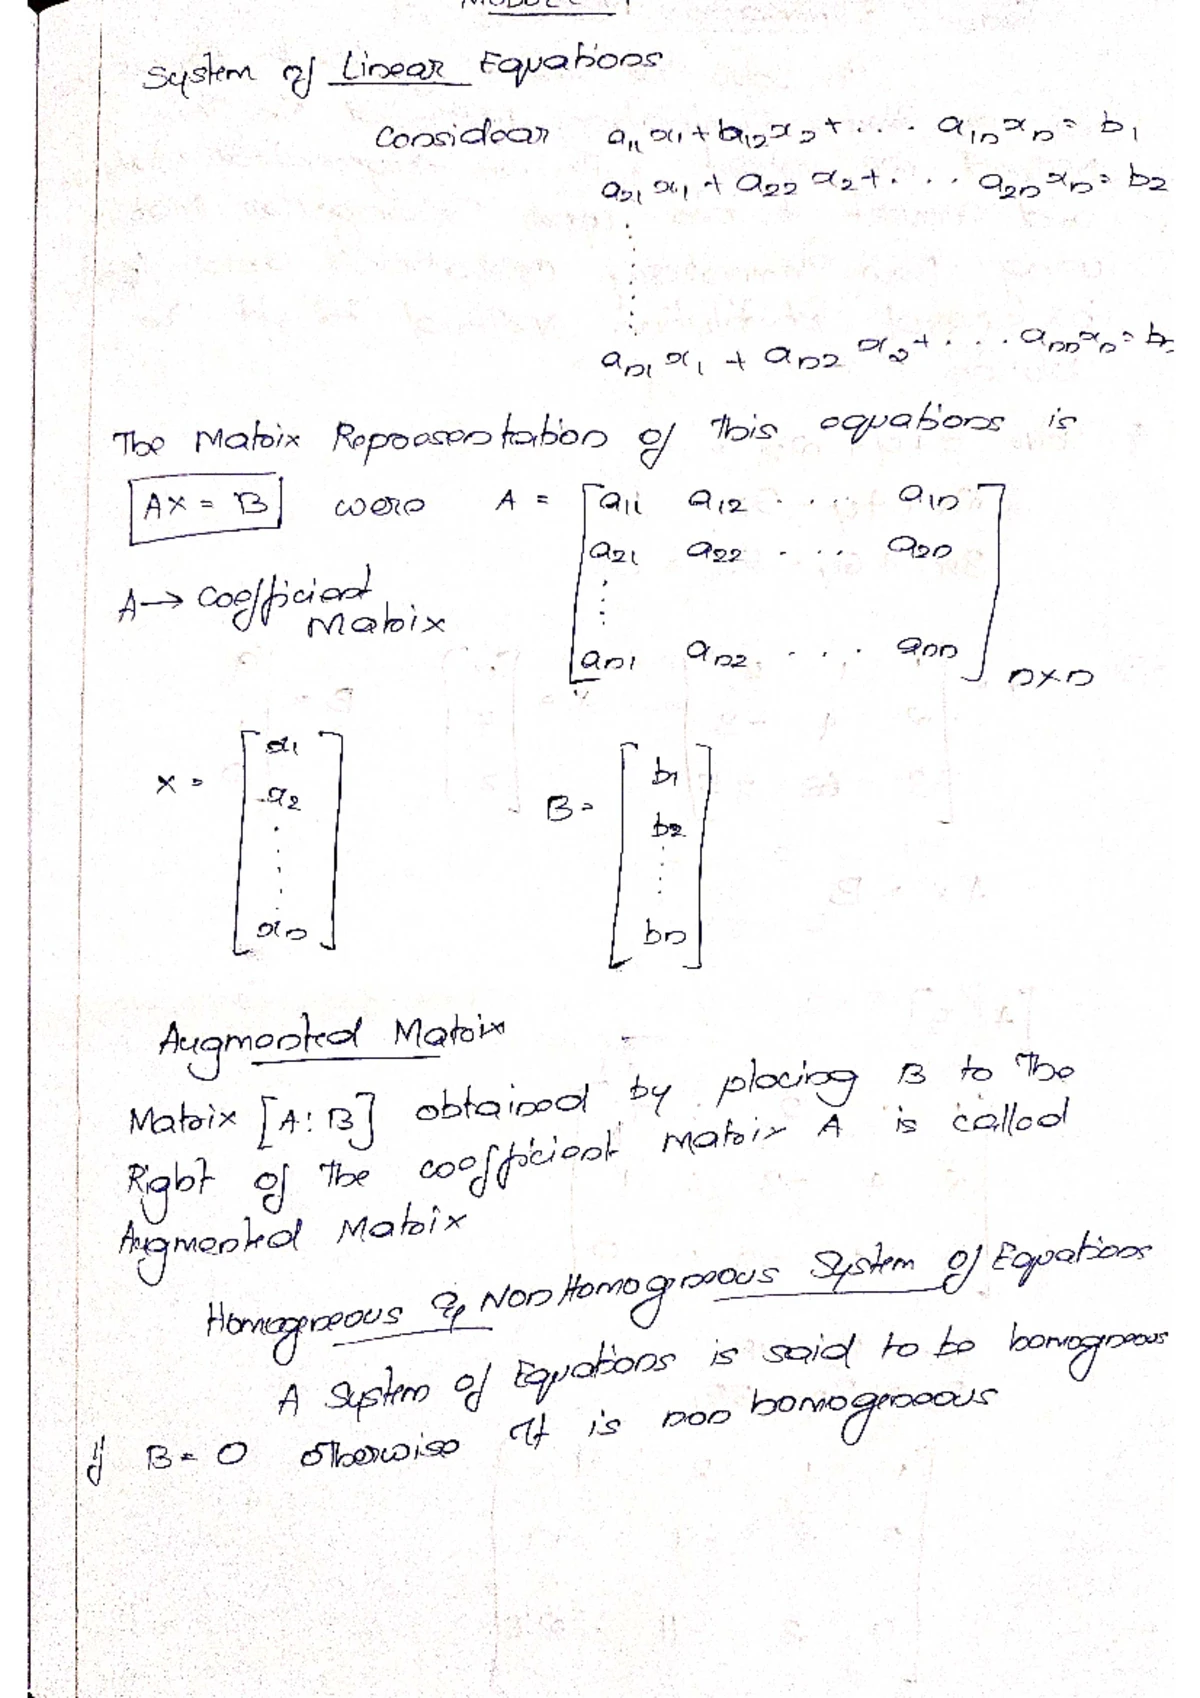 System of Linear Equations
Consider a₁₁x₁ + a₁₂x₂ + ... a₁ₙxₙ = b₁
a₂₁x₁ + a₂₂x₂ + ... a₂ₙxₙ = b₂
⋮
aₙ₁x₁ + aₙ₂x₂ + ... aₙₙxₙ = bₙ
The Matrix Representation of this equations is
AX = B were A = [a₁₁ a₁₂ ... a₁ₙ
a₂₁ a₂₂ ... a₂ₙ
⋮
aₙ₁ aₙ₂ ... aₙₙ] n×n
A → Coefficient
Matrix
X = [x₁ x₂ ⋮ xₙ] B = [b₁ b₂ ⋮ bₙ]
Augmented Matrix
Matrix [A:B] obtained by placing B to the
Right of the coefficient matrix A is called
Augmented Matrix
Homogeneous & Non Homogeneous System of Equations
A System of Equations is said to be homogneous
if B = 0 otherwise It is non homogeneous